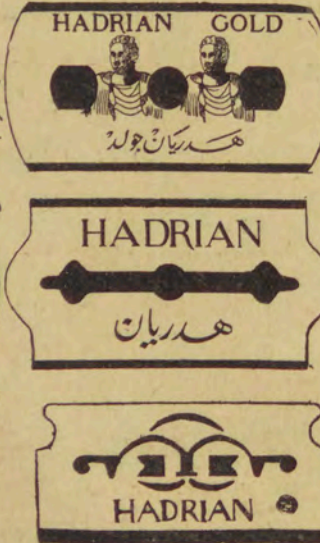 HADRIAN GOLD
هَدريَان جولدْ
HADRIAN
هدريان
HADRIAN